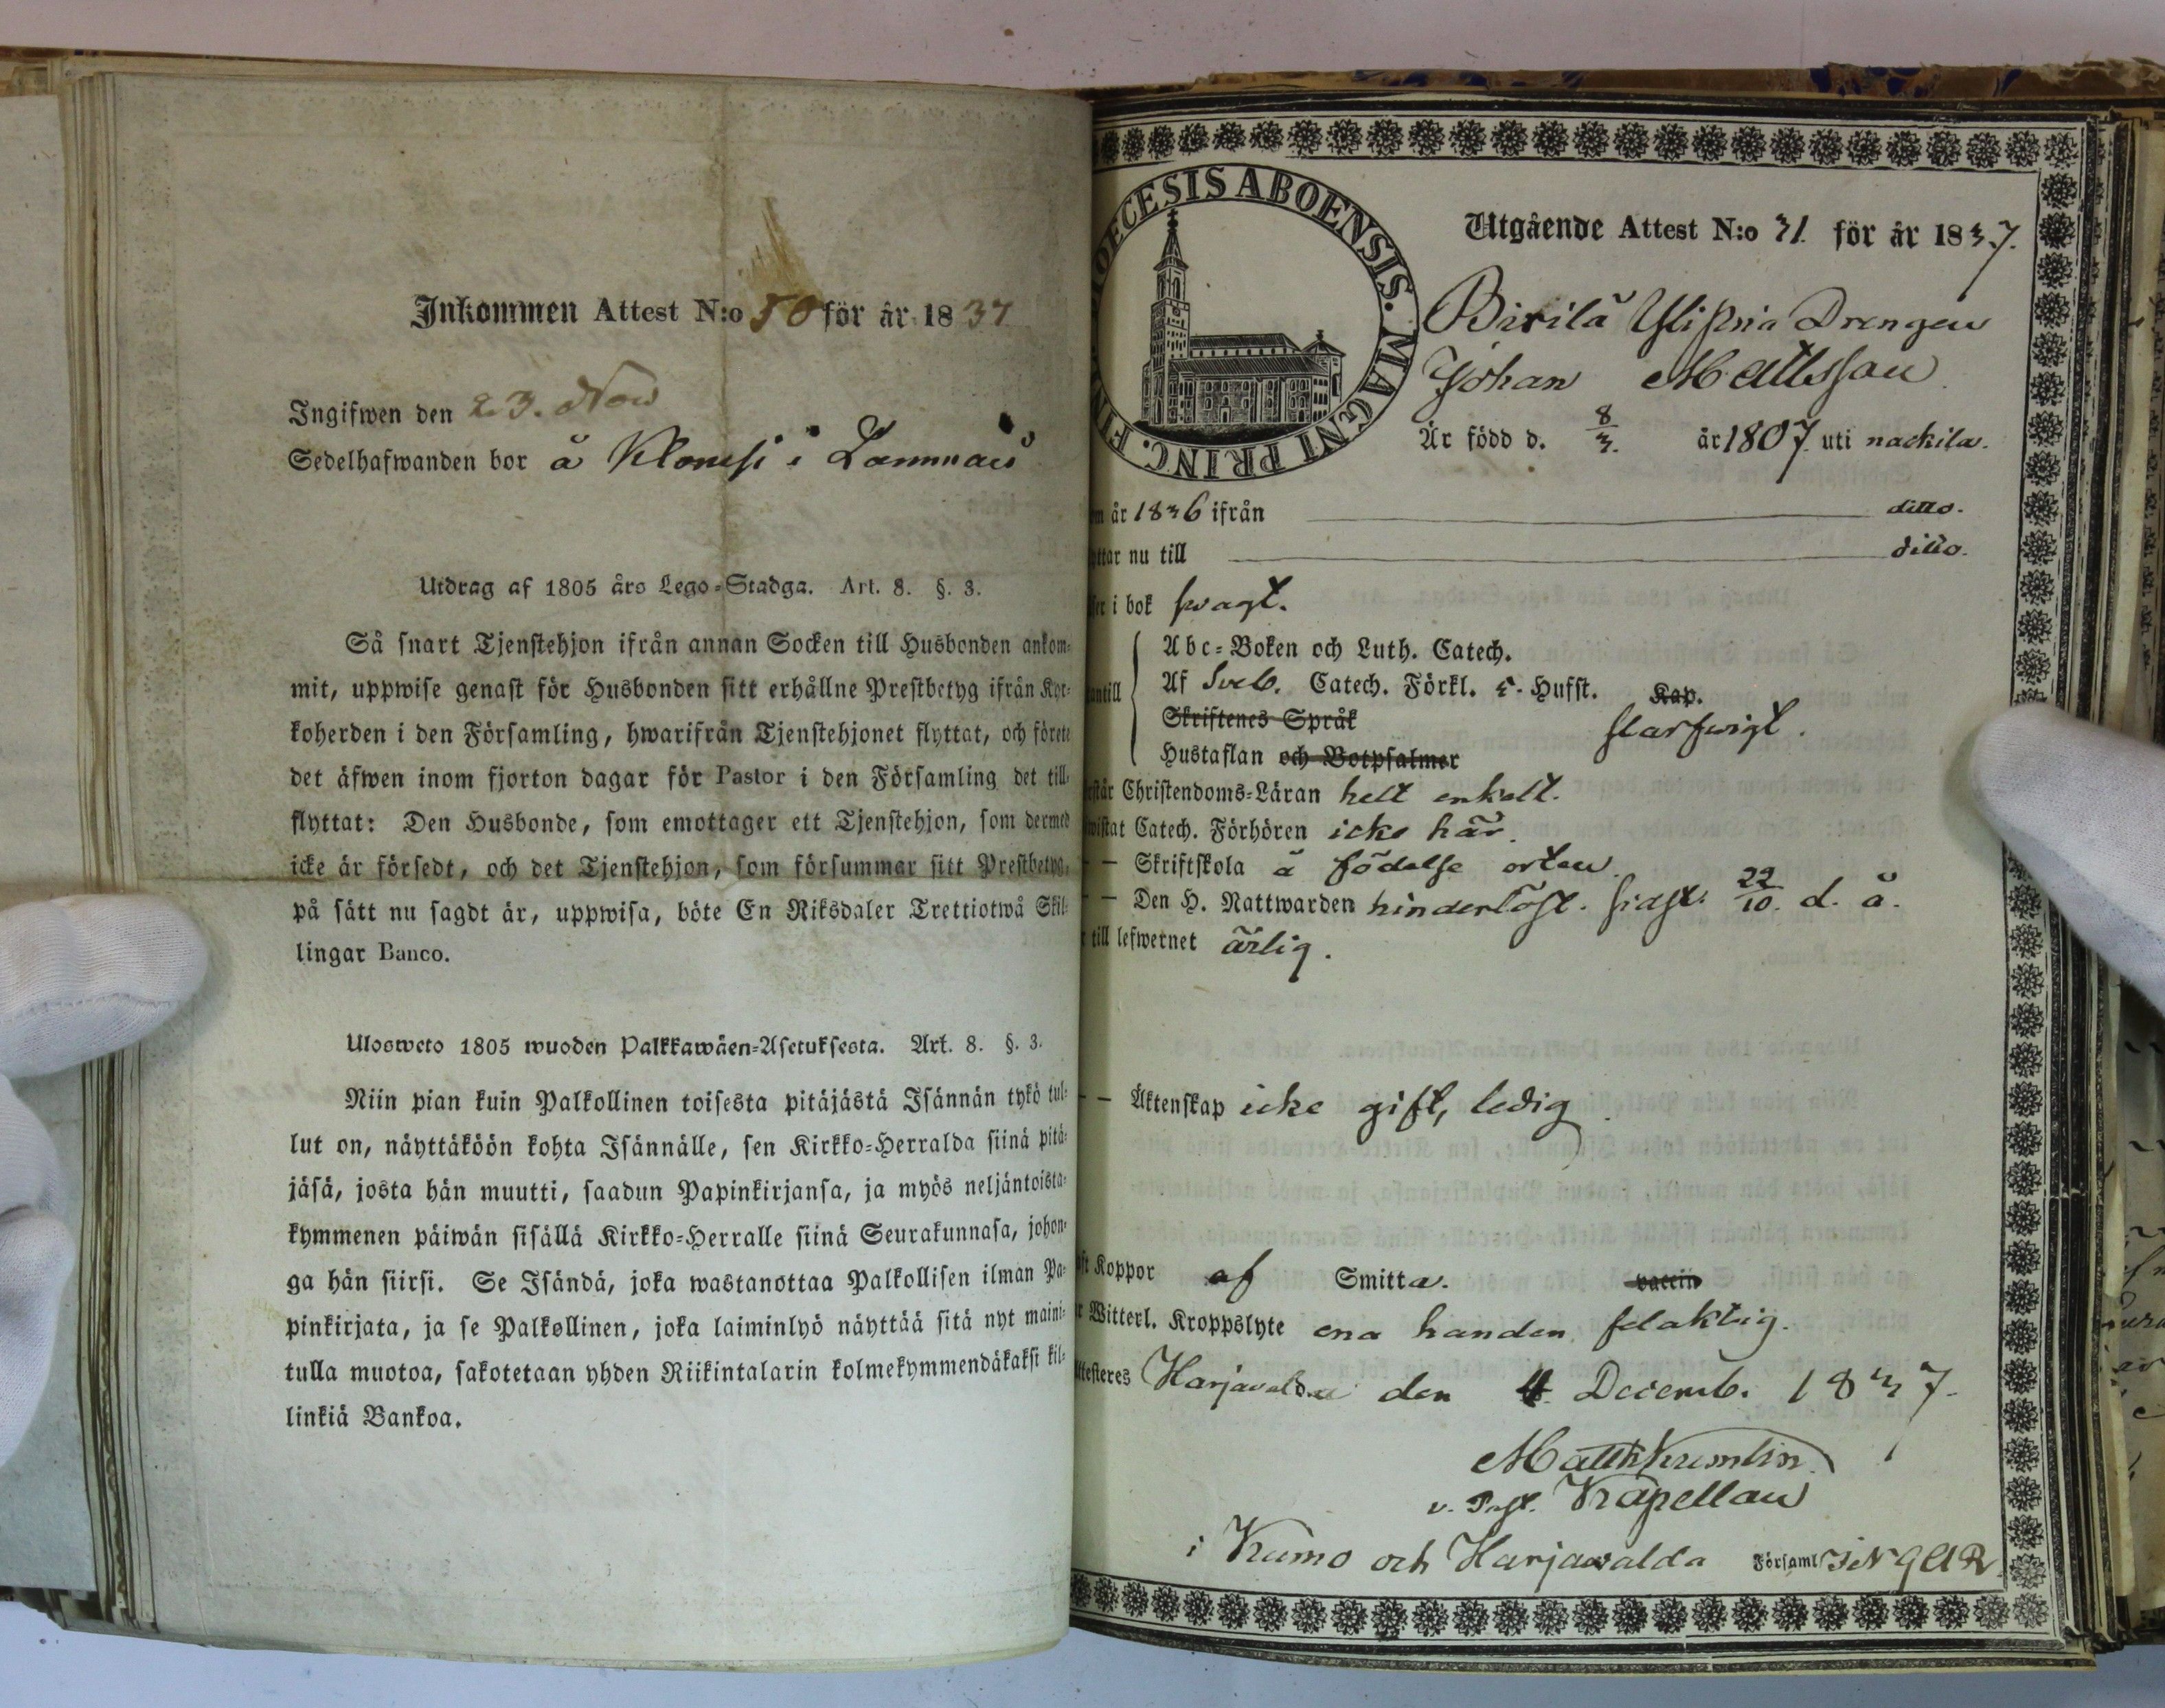 Inkommen Attest N:o 50 för år 1837
Ingifwen den 23. Nov
Sedelhafwanden bor å i
Utdrag af 1805 års Lego-Stadga. Art. 8. §. 3.
Så snart Tjenstehjon ifrån annan Socken till Husbonden ankom-
mit, uppwise genast för Husbonden sitt erhållne Prestbetyg ifrån Kyr-
koherden i den Församling, hwarifrån Tjenstehjonet flyttat, och förete
det äfwen inom fjorton dagar för Pastor i den Församling det till-
flyttat: Den Husbonde, som emottager ett Tjenstehjon, som dermed
icke är försedt, och det Tjenstehjon, som försummar sitt Prestbetyg,
på sätt nu sagdt är, uppwisa, böte En Riksdaler Trettiotwå Skil-
lingar Banco.
Ulosweto 1805 wuoden Palkkawäen-Asetuksesta. Art. 8. §. 3.
Niin pian kuin Palkollinen toisesta pitäjästä Isännän tykö tul-
lut on, näyttäköön kohta Isännälle, sen Kirkko-Herralda siinä pitä-
jäsä, josta hän muutti, saadun Papinkirjansa, ja myös neljäntoista-
kymmenen päiwän sisällä Kirkko-Herralle siinä Seurakunnasa, johon-
ga hän siirsi. Se Isändä, joka wastanottaa Palkollisen ilman Pa-
pinkirjata, ja se Palkollinen, joka laiminlyö näyttää sitä nyt maini-
tulla muotoa, sakotetaan yhden Riikintalarin kolmekymmendäkaksi kil-
linkiä Bankoa.
DIOECESIS ABOENSIS. MAGNI PRINC. FIN
Utgående Attest N:o 31. för år 1837.
Birilä Drengen
Johan Mattsson
Är född d. 8/3. år 1807. uti nackila.
år 1836 ifrån ditto.
nu till ditto.
i bok swagt.
Abc-Boken och Luth. Catech.
Af Sveb. Catech. Förkl. 5. Hufst. Kap.
Skriftenes Språk slarfwigt.
Hustaflan och Botpsalmer
Christendoms-Läran helt enkelt.
Catech. Förhören icke här.
— Skriftskola å födelse orten.
— Den H. Nattwarden hinderlöst. sidst. 22/10. d. å.
till lefwernet ärlig.
— Äktenskap icke gift, ledig
Koppor af Smitta. vaccin
Witterl. Kroppslyte ena handen felaktig.
Harjavalda den 4 Decemb. 1837.
Matth Kumlin
v. Past. Kapellan
i Kumo och Harjawalda Församl INGAR